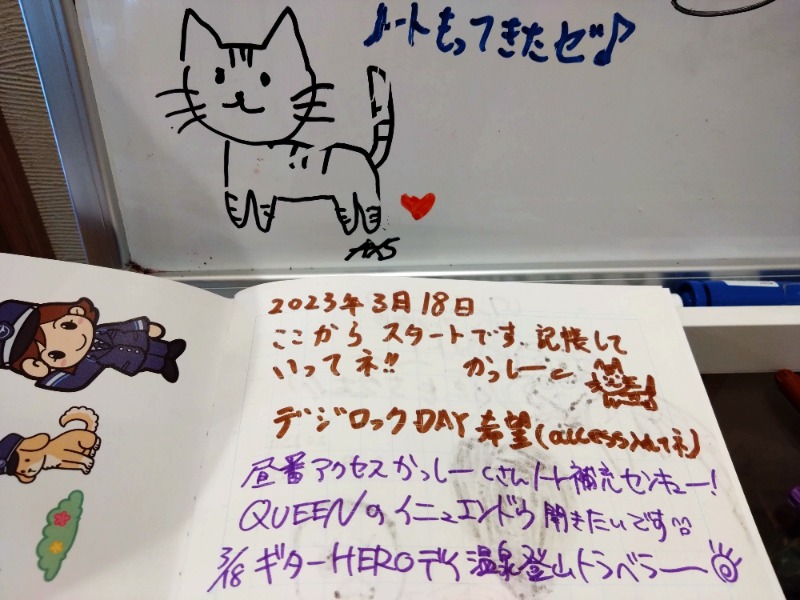 ノートもってきたゼ♪
2023年3月18日
ここから スタートです。記帳して
いってネ!! かっしーc
デジロックDAY 希望(access入れてネ)
昼番アクセスかっしーcさんノート補充センキュー!
QUEENのイニュエンドウ 聞きたいです
3/18 ギターHEROデイ 温泉登山トラベラー